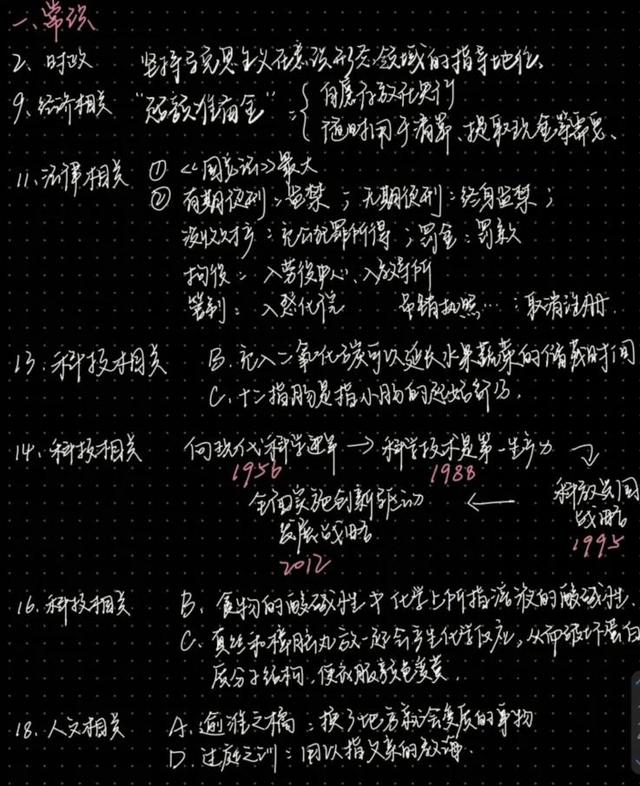 一、常识
2、时政 坚持马克思主义在意识形态领域的指导地位、
9、经济相关 “超额准备金” = { 自愿存放在央行
随时用于清算、提取现金等需要、
11、法律相关 ① 《国家法》最大
② 有期徒刑：监禁；无期徒刑：终身监禁；
没收财产：充公犯罪所得；罚金：罚款
拘役：入劳役中心、入教导所
管制：入感化院 吊销执照…：取消注册
13、科技相关 B、充入二氧化碳可以延长水果蔬菜的储藏时间
C、十二指肠是指小肠的起始部分、
14、科技相关 向现代科学进军 → 科学技术是第一生产力
1956 1988
全面实施创新驱动 ← 科教兴国
发展战略 战略
2012 1995
16、科技相关 B、食物的酸碱性 ≠ 化学上所指溶液的酸碱性、
C、真丝和樟脑丸放一起会产生化学反应，从而破坏蛋白
质分子结构，使衣服颜色变黄、
18、人文相关 A、逾淮之橘：换了地方就会变质的事物
D、过庭之训：用以指父亲的教诲、